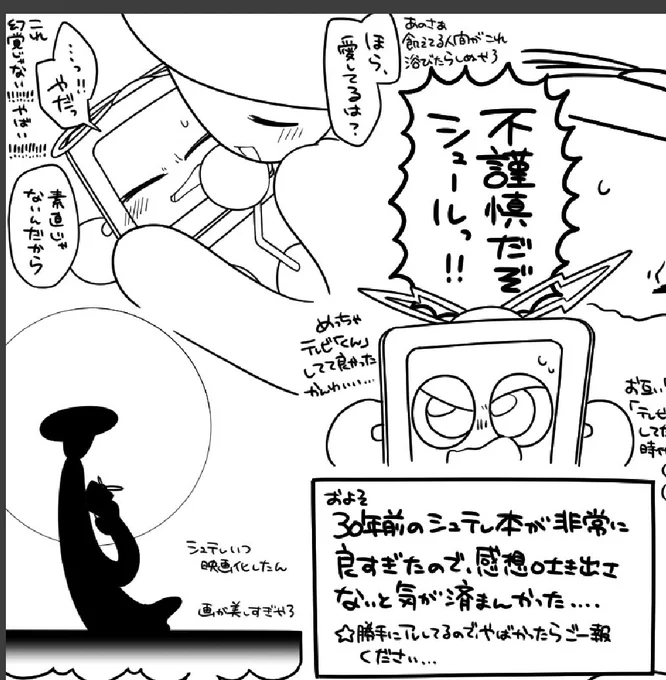 あのさぁ
飢えてる人間がこれ
浴びたらしぬやろ
ほら、
愛してるは？
…っ!!
やだっ
これ
幻覚じゃない
!!!!!!やばい
!!!!!!!!
素直じゃ
ないんだから
不謹慎だぞ
シュールっ!!
めっちゃ
テレビ「くん」
してて良かった
かんわいい…
お互い
「テレビ
してた
時や
シュテレいつ
映画化したん
画が美しすぎやろ
およそ
30年前のシュテレ本が非常に
良すぎたので、感想吐き出さ
ないと気が済まんかった....
☆勝手にアレしてるので、やばかったらご一報
ください...